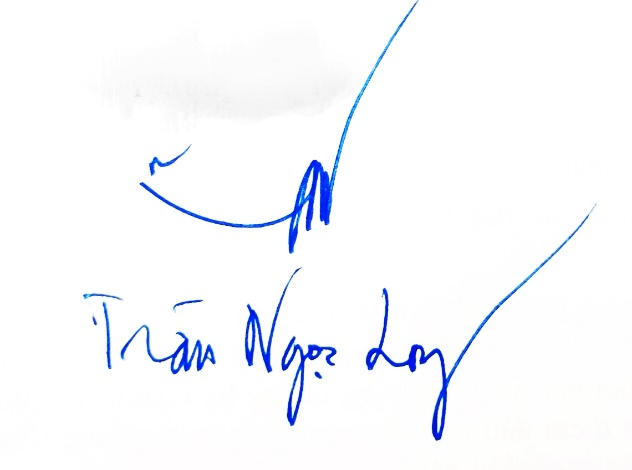 Trần Ngọc Long